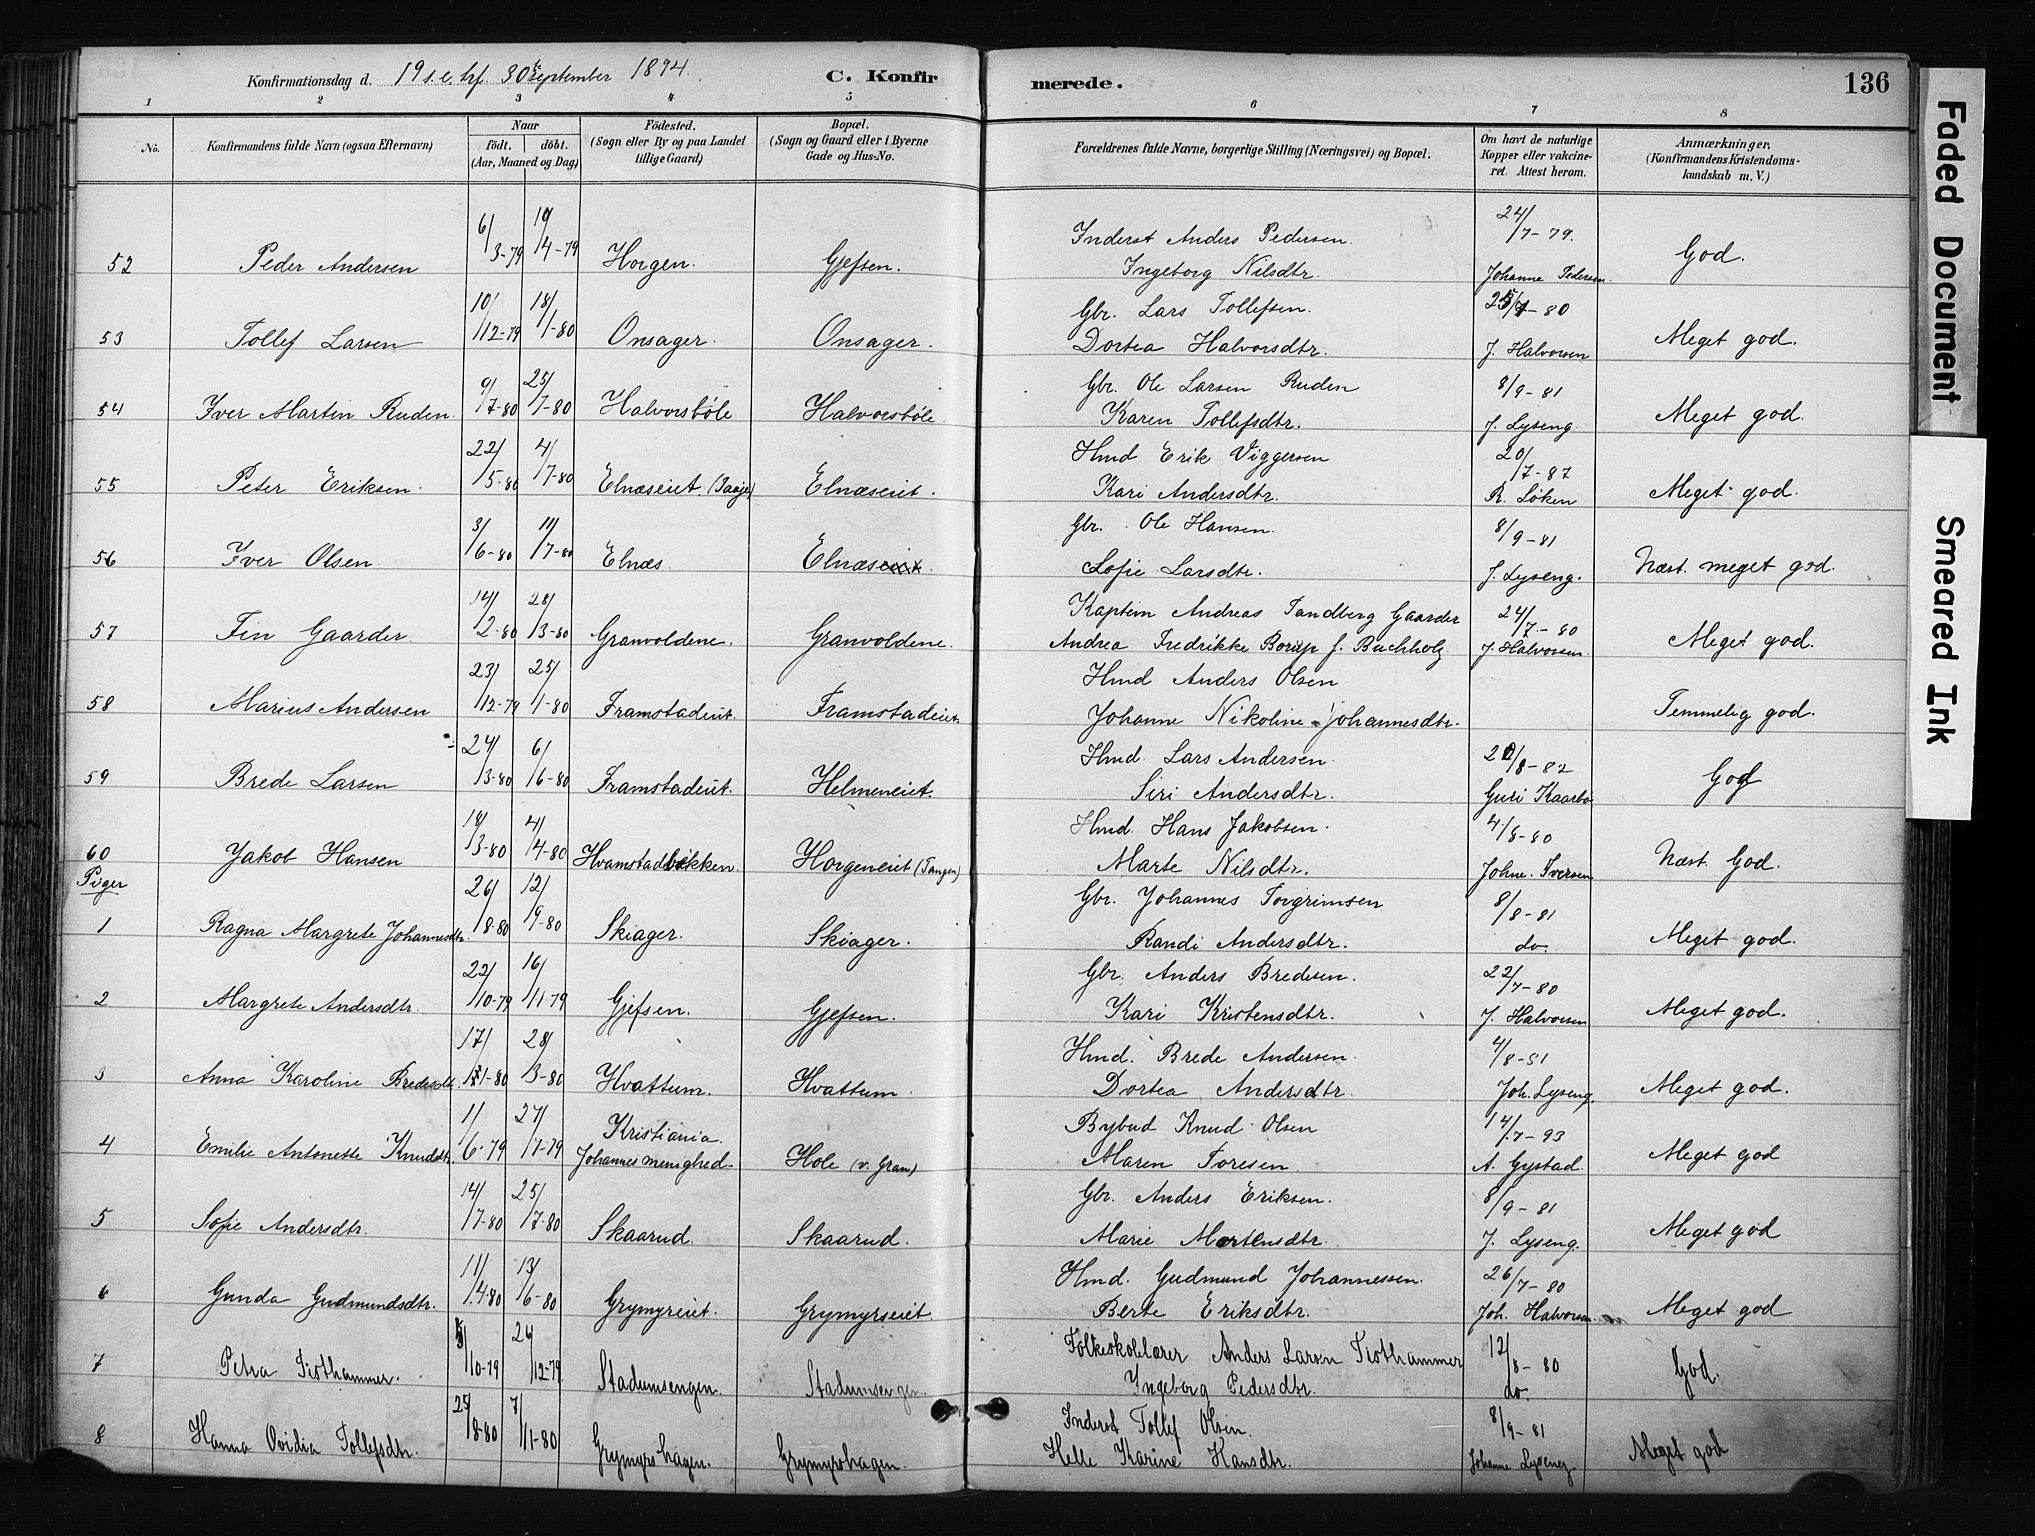 Konfirmationsdag d. 19 s. e. trf. 30te September 1894.
C. Konfirmerede.
136
1 2 3 4 5 6 7 8
No.
Konfirmandens fulde Navn (ogsaa Efternavn)
Naar
födt. döbt.
(Aar, Maaned og Dag)
Födested.
(Sogn eller By og paa Landet
tillige Gaard)
Bopæl.
(Sogn og Gaard eller i Byerne
Gade og Hus-No.
Forældrenes fulde Navne, borgerlige Stilling (Næringsvei) og Bopæl.
Om havt de naturlige
Kopper eller vakcine-
ret. Attest herom.
Anmærkninger.
(Konfirmandens Kristendoms-
kundskab m. V.)
52 Peder Andersen 6/3-79 19/4-79 Horgen. Gjefsen. Inderst Anders Pedersen. 24/7-79. God.
Ingeborg Nilsdtr. Johanne Pedersen.
53 Tollef Larsen 10/12-79 18/1-80 Onsager. Onsager. Gbr. Lars Tollefsen. 25/7-80 Meget god.
Dortea Halvorsdtr. J. Halvorsen
54 Iver Martin Ruden. 9/7-80 25/7-80 Halvorsböle Halvorsböle. Gbr. Ole Larsen Ruden 8/9-81 Meget god.
Karen Tollefsdtr. J. Lyseng
55 Peter Eriksen. 22/5-80 4/7-80 Elnæseiet (Taaje) Elnæseiet. Hmd Erik Viggersen 20/7-87 Meget god.
Kari Andersdtr. R. Löken
56 Iver Olsen. 3/6-80 11/7-80 Elnæs Elnæs Gbr. Ole Hansen. 8/9-81 Næst. meget god.
Sofie Larsdtr. J. Lyseng.
57 Fin Gaarder 14/2-80 28/3-80 Granvoldene. Granvoldene. Kaptein Andreas Tandberg Gaarder 24/7-80 Meget god.
Andrea Fredrikke Borup f. Buchholz J. Halvorsen.
58 Marius Andersen 23/12-79 25/1-80 Framstadeiet. Framstadeiet. Hmd Anders Olsen Temmelig god.
Johanne Nikoline Johannesdtr.
59 Brede Larsen 24/3-80 6/6-80 Framstadeiet. Helmeneiet. Hmd. Lars Andersen. 20/8-82 God
Siri Andersdtr. Guri Kaarbö
60 Jakob Hansen 18/3-80 4/4-80 Hvamstadbökken. Horgeneiet (Tangen) Hmd. Hans Jakobsen. 4/8-80 Næst. God.
Marte Nilsdtr. Johne. Iversen
Piger
1 Ragna Margrete Johannesdtr. 26/8-80 12/9-80 Skiager. Skiager. Gbr. Johannes Torgrimsen 8/8-81 Meget god.
Randi Andersdtr. do.
2 Margrete Andersdtr. 22/10-79 16/11-79 Gjefsen. Gjefsen. Gbr. Anders Bredesen. 22/7-80 Meget god.
Kari Kristensdtr. J. Halvorsen
3 Anna Karoline Bredesdtr. 17/1-80 28/3-80 Hvattum. Hvattum. Hmd. Brede Andersen. 4/8-81 Meget god.
Dortea Andersdtr. Joh. Lyseng.
4 Emilie Antonette Knudsdtr. 11/6-79 27/7-79 Kristiania. Hole (v. Gran) Bybud Knud Olsen 14/7-93 Meget god
Johannes menighed Maren Toresen. A. Gystad.
5 Sofie Andersdtr. 14/7-80 25/7-80 Skaarud. Skaarud. Gbr. Anders Eriksen. 8/9-81 Meget god
Marie Mortensdtr. J. Lyseng.
6 Gunda Gudmundsdtr. 11/4-80 13/6-80 Grymyreiet. Grymyrseiet. Hmd. Gudmund Johannessen. 26/7-80 Meget god
Berte Eriksdtr. Joh. Halvorsen
7 Petra Tiothammer. 5/10-79 26/12-79 Stadumsengen. Stadumsengen. Folkeskolelærer Anders Larsen Tiothammer 12/8-80 God.
Ingeborg Pedersdtr. do.
8 Hanna Ovidia Tollefsdtr. 25/8-80 7/11-80 Grymyrshagen. Grymyrshagen. Inderst Tollef Olsen. 8/9-81 Meget god
Helle Karine Hansdtr. Johanne Lyseng.
Faded Document
Smeared Ink